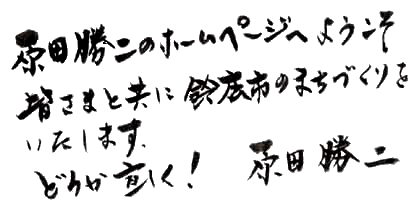 原田勝二のホームページへようこそ
皆さまと共に鈴鹿市のまちづくりを
いたします。
どうか宜しく! 原田勝二